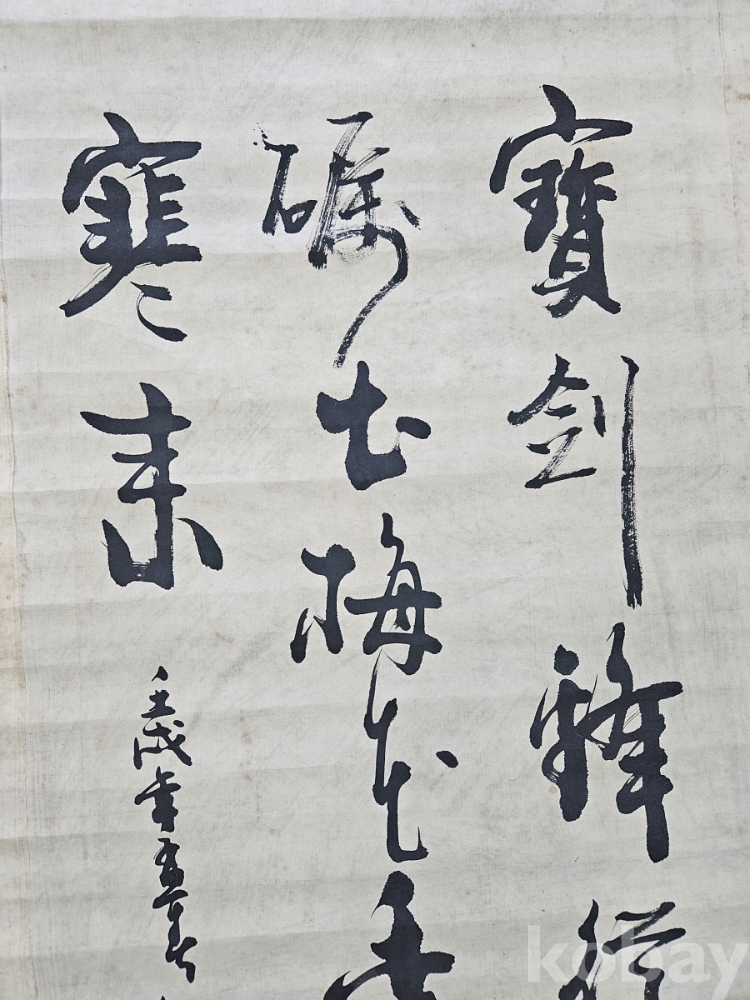 寶剑鋒從
礪出梅花香
寒来
壬戌年
kobay